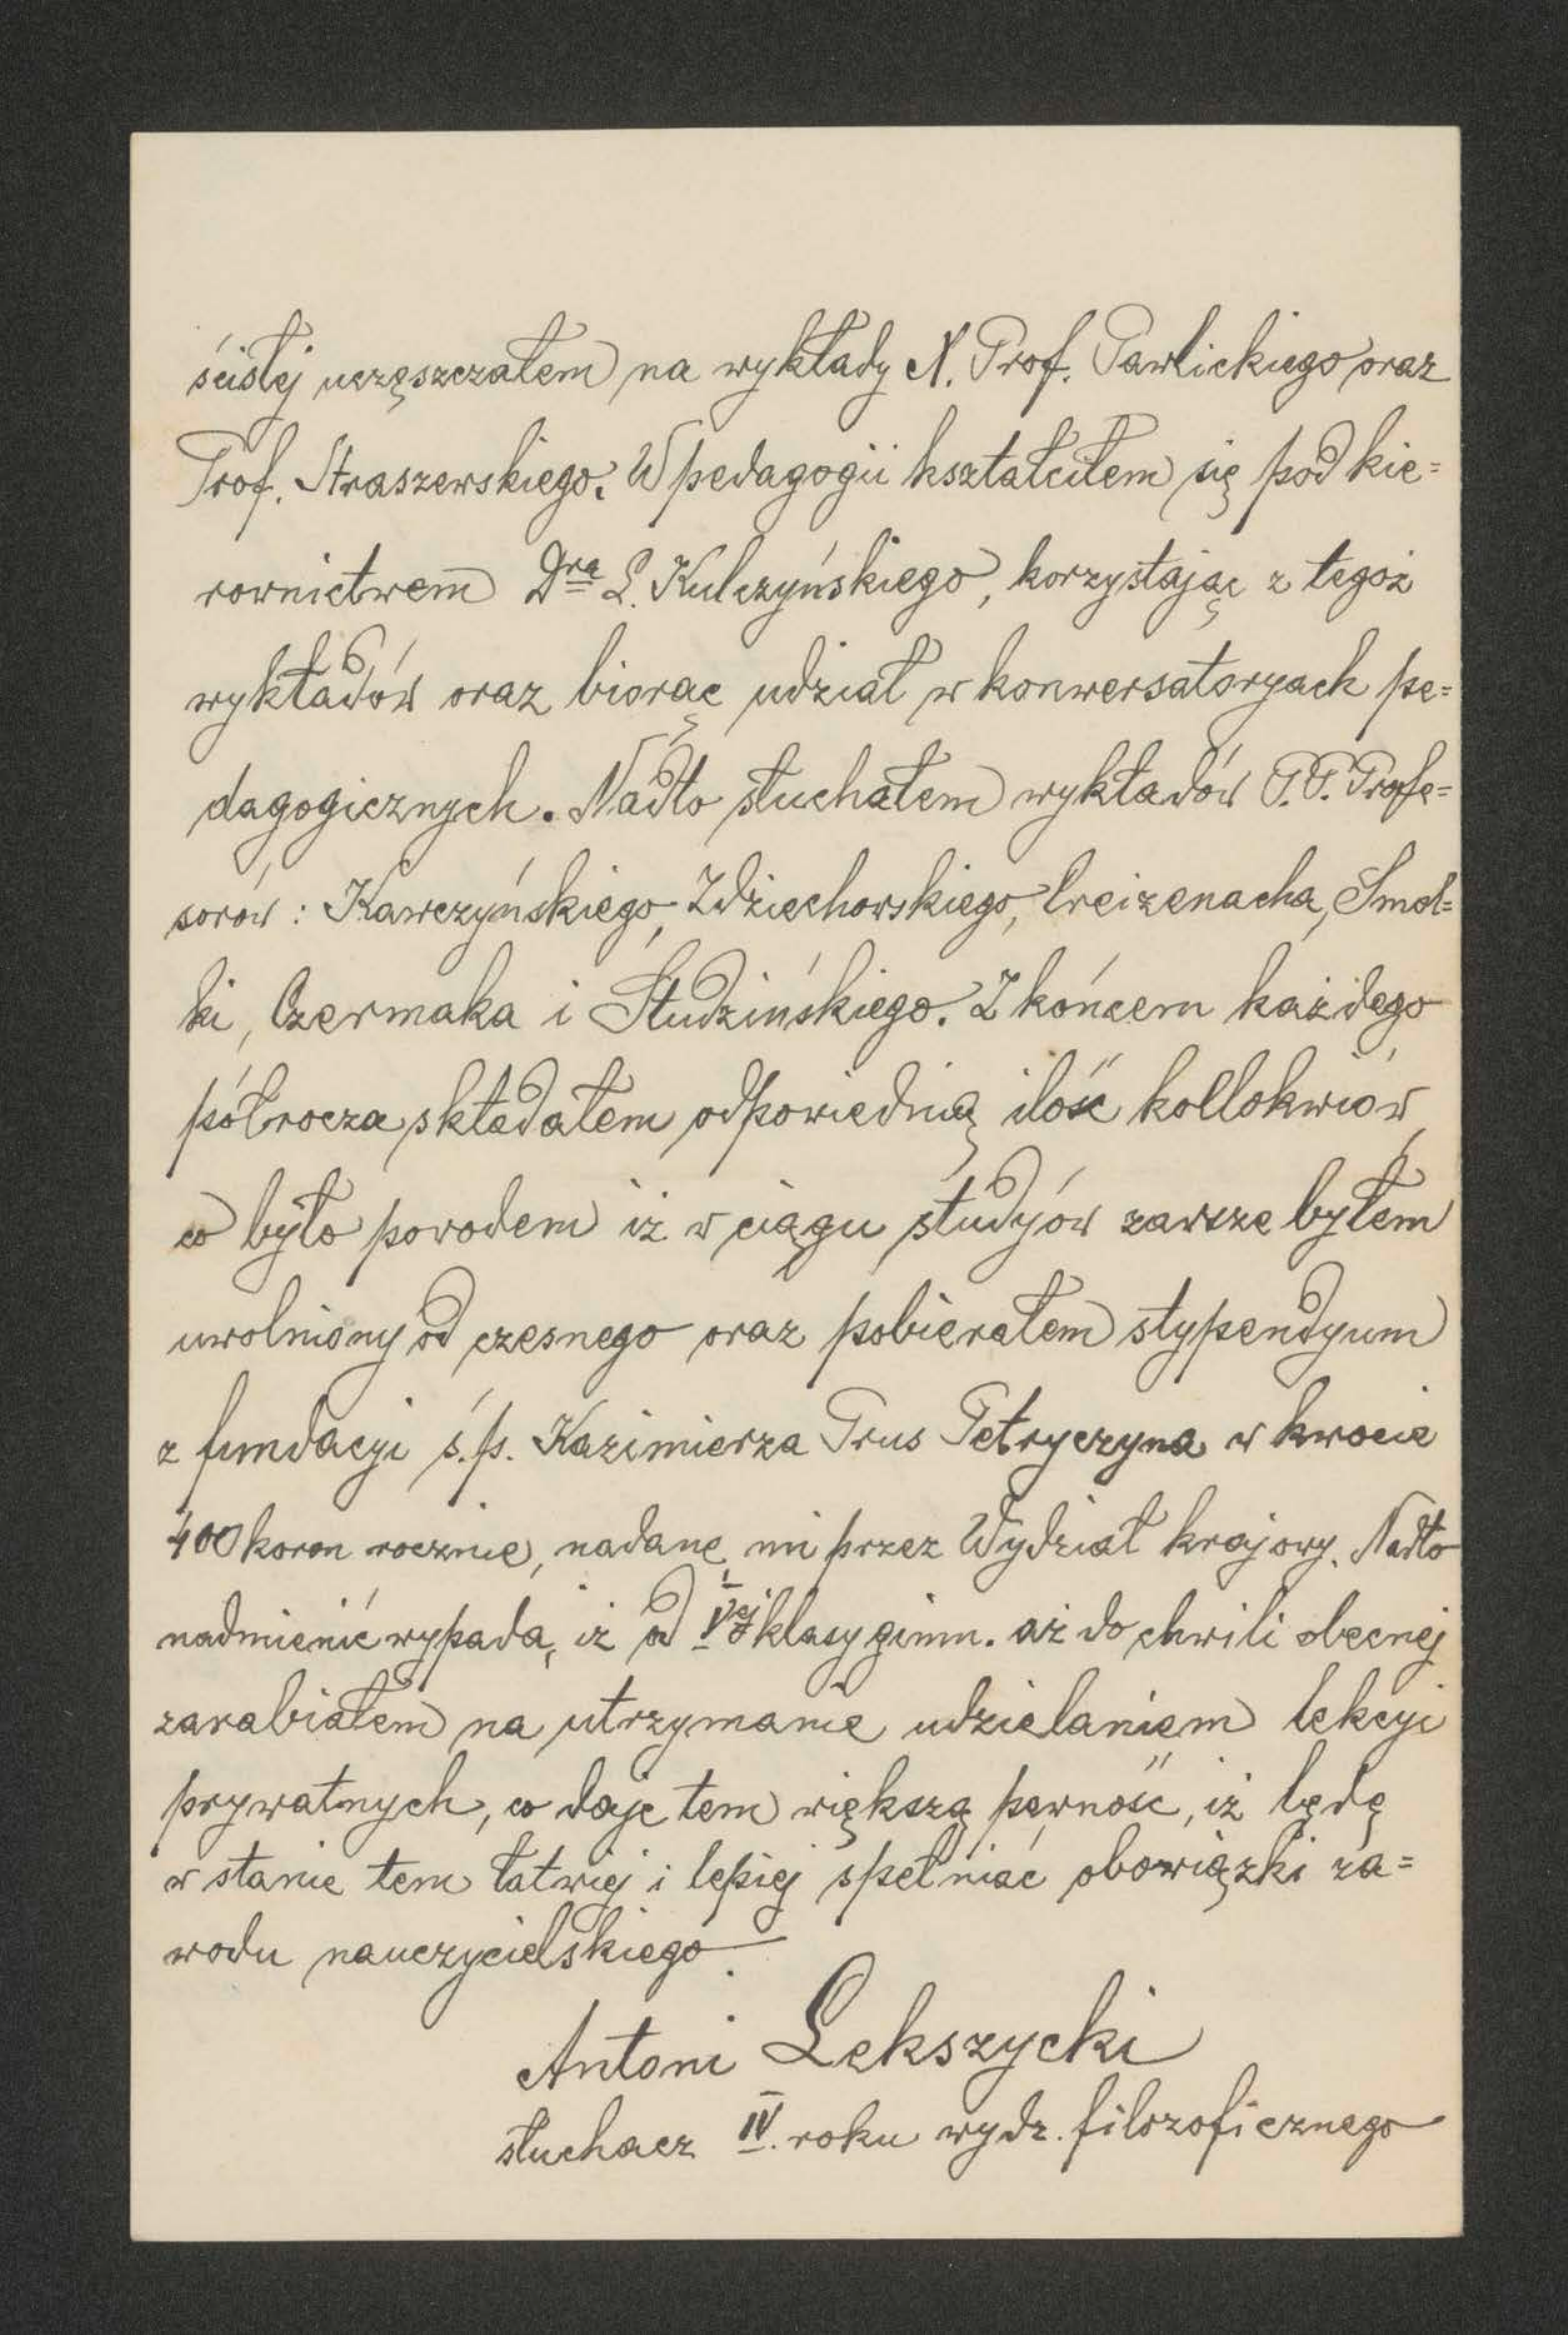 ścisłej uczęszczałem na wykłady X. Prof. Pawlickiego oraz
Prof. Straszewskiego. W pedagogii kształciłem się pod kie=
rownictwem Dra L. Kulczyńskiego, korzystając z tegoż
wykładów oraz biorąc udział w konwersatoryach pe=
dagogicznych. Nadto słuchałem wykładów P.P. Profe=
sorów: Kawczyńskiego, Zdziechowskiego, Creizenacha, Smol=
ki, Czermaka i Studzińskiego. Z końcem każdego
półrocza składałem odpowiednią ilość kollokwiów,
co było powodem iż w ciągu studyów zawsze byłem
uwolniony od czesnego oraz pobierałem stypendyum
z fundacyi ś.p. Kazimierza Prus Petryczyna w kwocie
400 koron rocznie, nadane mi przez Wydział krajowy. Nadto
nadmienić wypada, iż od V ej klasy gimn. aż do chwili obecnej
zarabiałem na utrzymanie udzielaniem lekcyi
prywatnych, co daje tem większą pewność, iż będę
w stanie tem łatwiej i lepiej spełniać obowiązki za=
wodu nauczycielskiego.
Antoni Lekszycki
słuchacz IV. roku wydz. filozoficznego